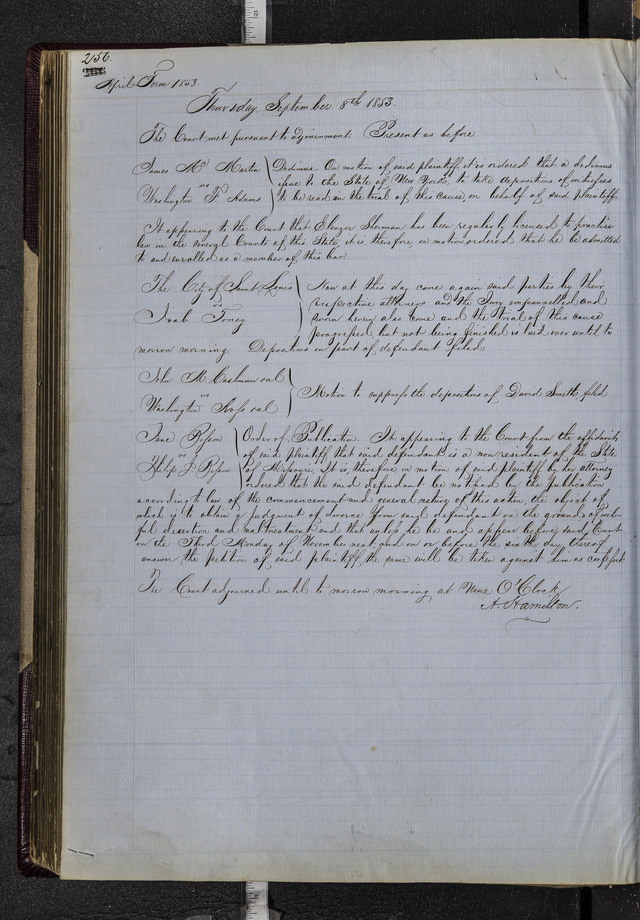 256.
April Term 1853.
Thursday September 8th 1853.
The Court met pursuant to adjournment. Present as before
James M. Martin
vs
Washington F Adams
Dedimus. On motion of said plaintiff it is ordered that a dedimus
issue to the State of New York, to take depositions of witnesses
to be read on the trial of this cause, on behalf of said plaintiff
It appearing to the Court that Eleazer Sherman has been regularly licensed to practise
law in the several Courts of this State, it is, therefore, on motion ordered that he be admitted
to and enrolled as a member of this bar.
The City of Saint Louis
vs
Toney
Now at this day come again said parties by their
respective attorneys and the Jury empannelled and
sworn herein also come and the trial of this cause
progressed, but not being finished is laid over until to
morrow morning. Depositions on part of defendant filed
John R. Cashman et al
vs
Washington et al
Motion to suppress the depositions of David Smith filed
Jane
vs
Philip J
Order of Publication. It appearing to the Court from the affidavit
of said plaintiff that said defendant is a non resident of the State
of Missouri, It is, therefore on motion of said plaintiff by her attorney
ordered that the said defendant be notified by the publication
according to law of the commencement and general nature of this action, the object of
which is to obtain a judgment of divorce from said defendant on the grounds of wil-
ful desertion and and that unless he be and appear before said Court
on the Third Monday of November next and on or before the sixth day thereof
answer the petition of said plaintiff, the same will be taken against him as confessed
The Court adjourned until to morrow morning at Nine O'Clock
A. Hamilton.